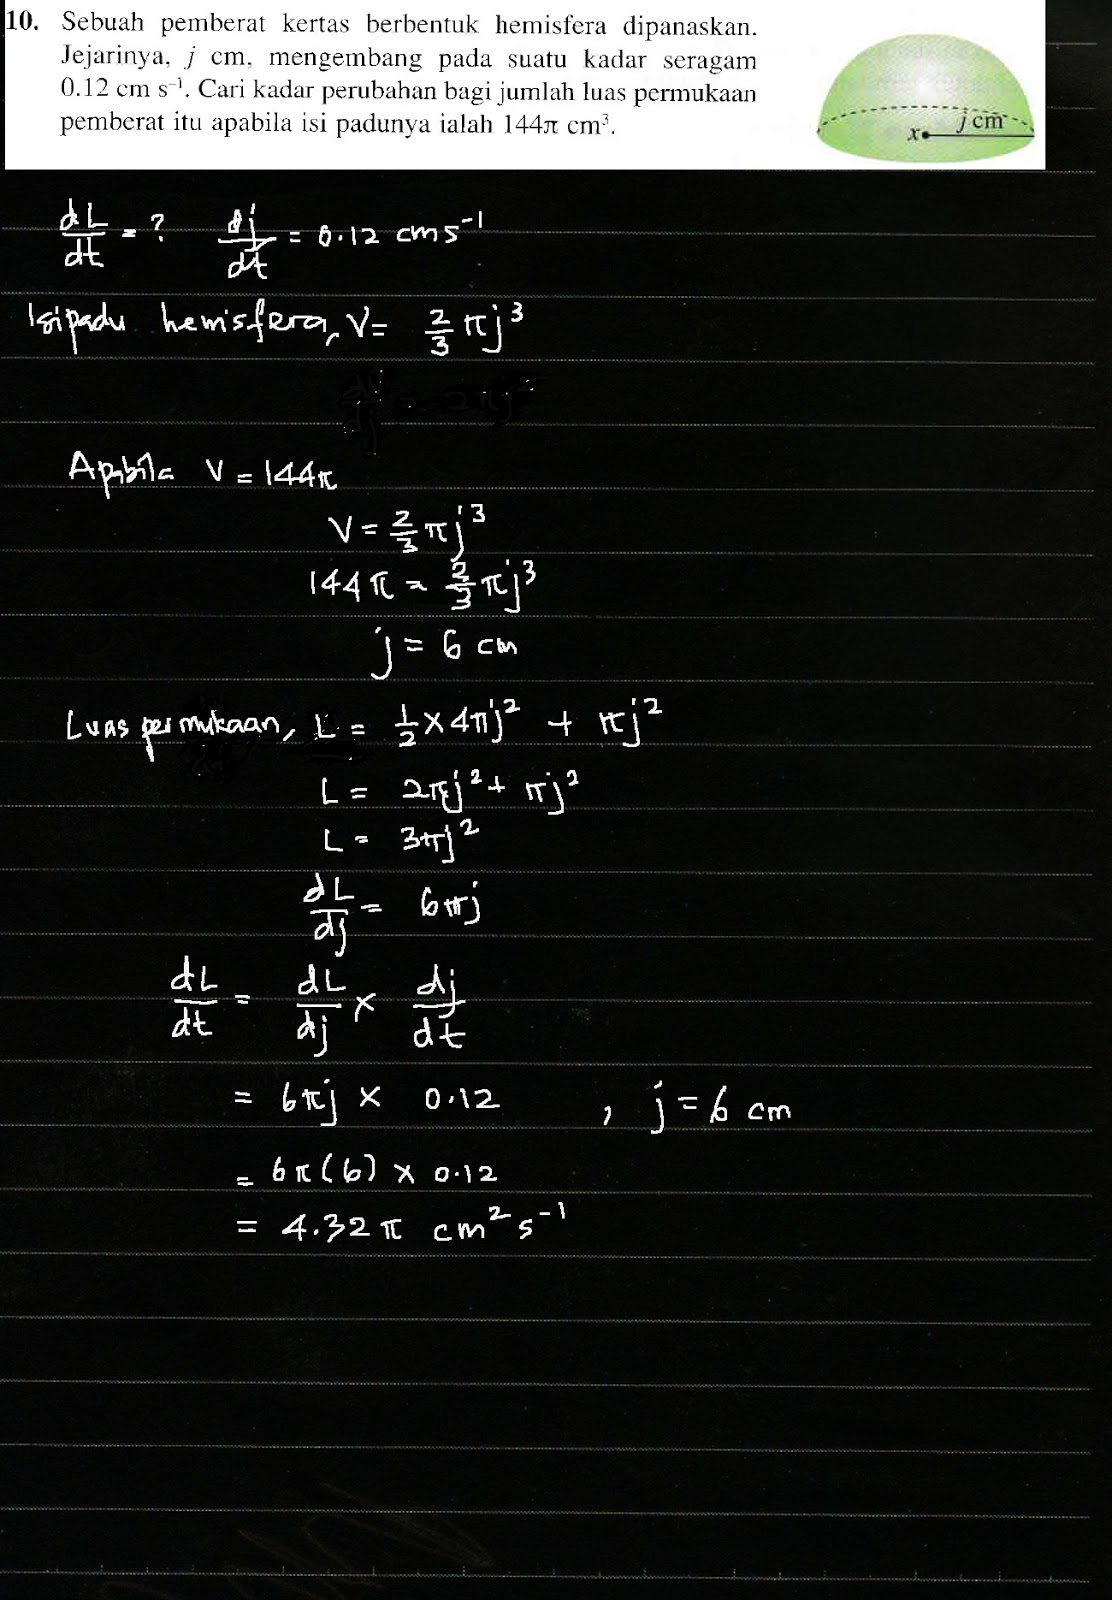 10. Sebuah pemberat kertas berbentuk hemisfera dipanaskan.
Jejarinya, j cm, mengembang pada suatu kadar seragam
0.12 cm s⁻¹. Cari kadar perubahan bagi jumlah luas permukaan
pemberat itu apabila isi padunya ialah 144π cm³.
x j cm
dL/dt = ? dj/dt = 0.12 cm s⁻¹
Isipadu hemisfera, V = 2/3 πj³
Apabila V = 144π
V = 2/3 πj³
144π = 2/3 πj³
j = 6 cm
Luas permukaan, L = 1/2 × 4πj² + πj²
L = 2πj² + πj²
L = 3πj²
dL/dj = 6πj
dL/dt = dL/dj × dj/dt
= 6πj × 0.12 , j = 6 cm
= 6π(6) × 0.12
= 4.32π cm² s⁻¹